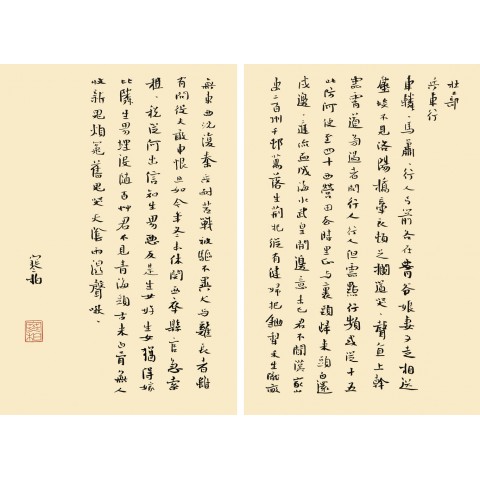 杜工部
兵車行
車轔、馬蕭、行人弓箭各在腰耶娘妻子走相送
塵埃不見陽橋牽衣頓足攔道哭、聲直上干
雲霄道旁過者問行人行人但雲點行頻或從十五
北防河便至四十西營田去時里正與裹頭歸來頭白還
戍邊、庭流血成海水武皇開邊意未已君不聞漢家山
東二百州千邨萬落生荊杞縱有健婦把鋤犁禾生隴畝
無東西況復秦兵耐苦戰被驅不異犬与雞長者雖
有問役夫敢申恨且如今年冬未休關西卒縣官急索
租、稅從何出信知生男惡反是生女好生女猶得嫁
比鄰生男埋沒隨百艸君不見青海頭古來白骨無人
收新鬼煩冤舊鬼哭天陰雨濕聲啾、